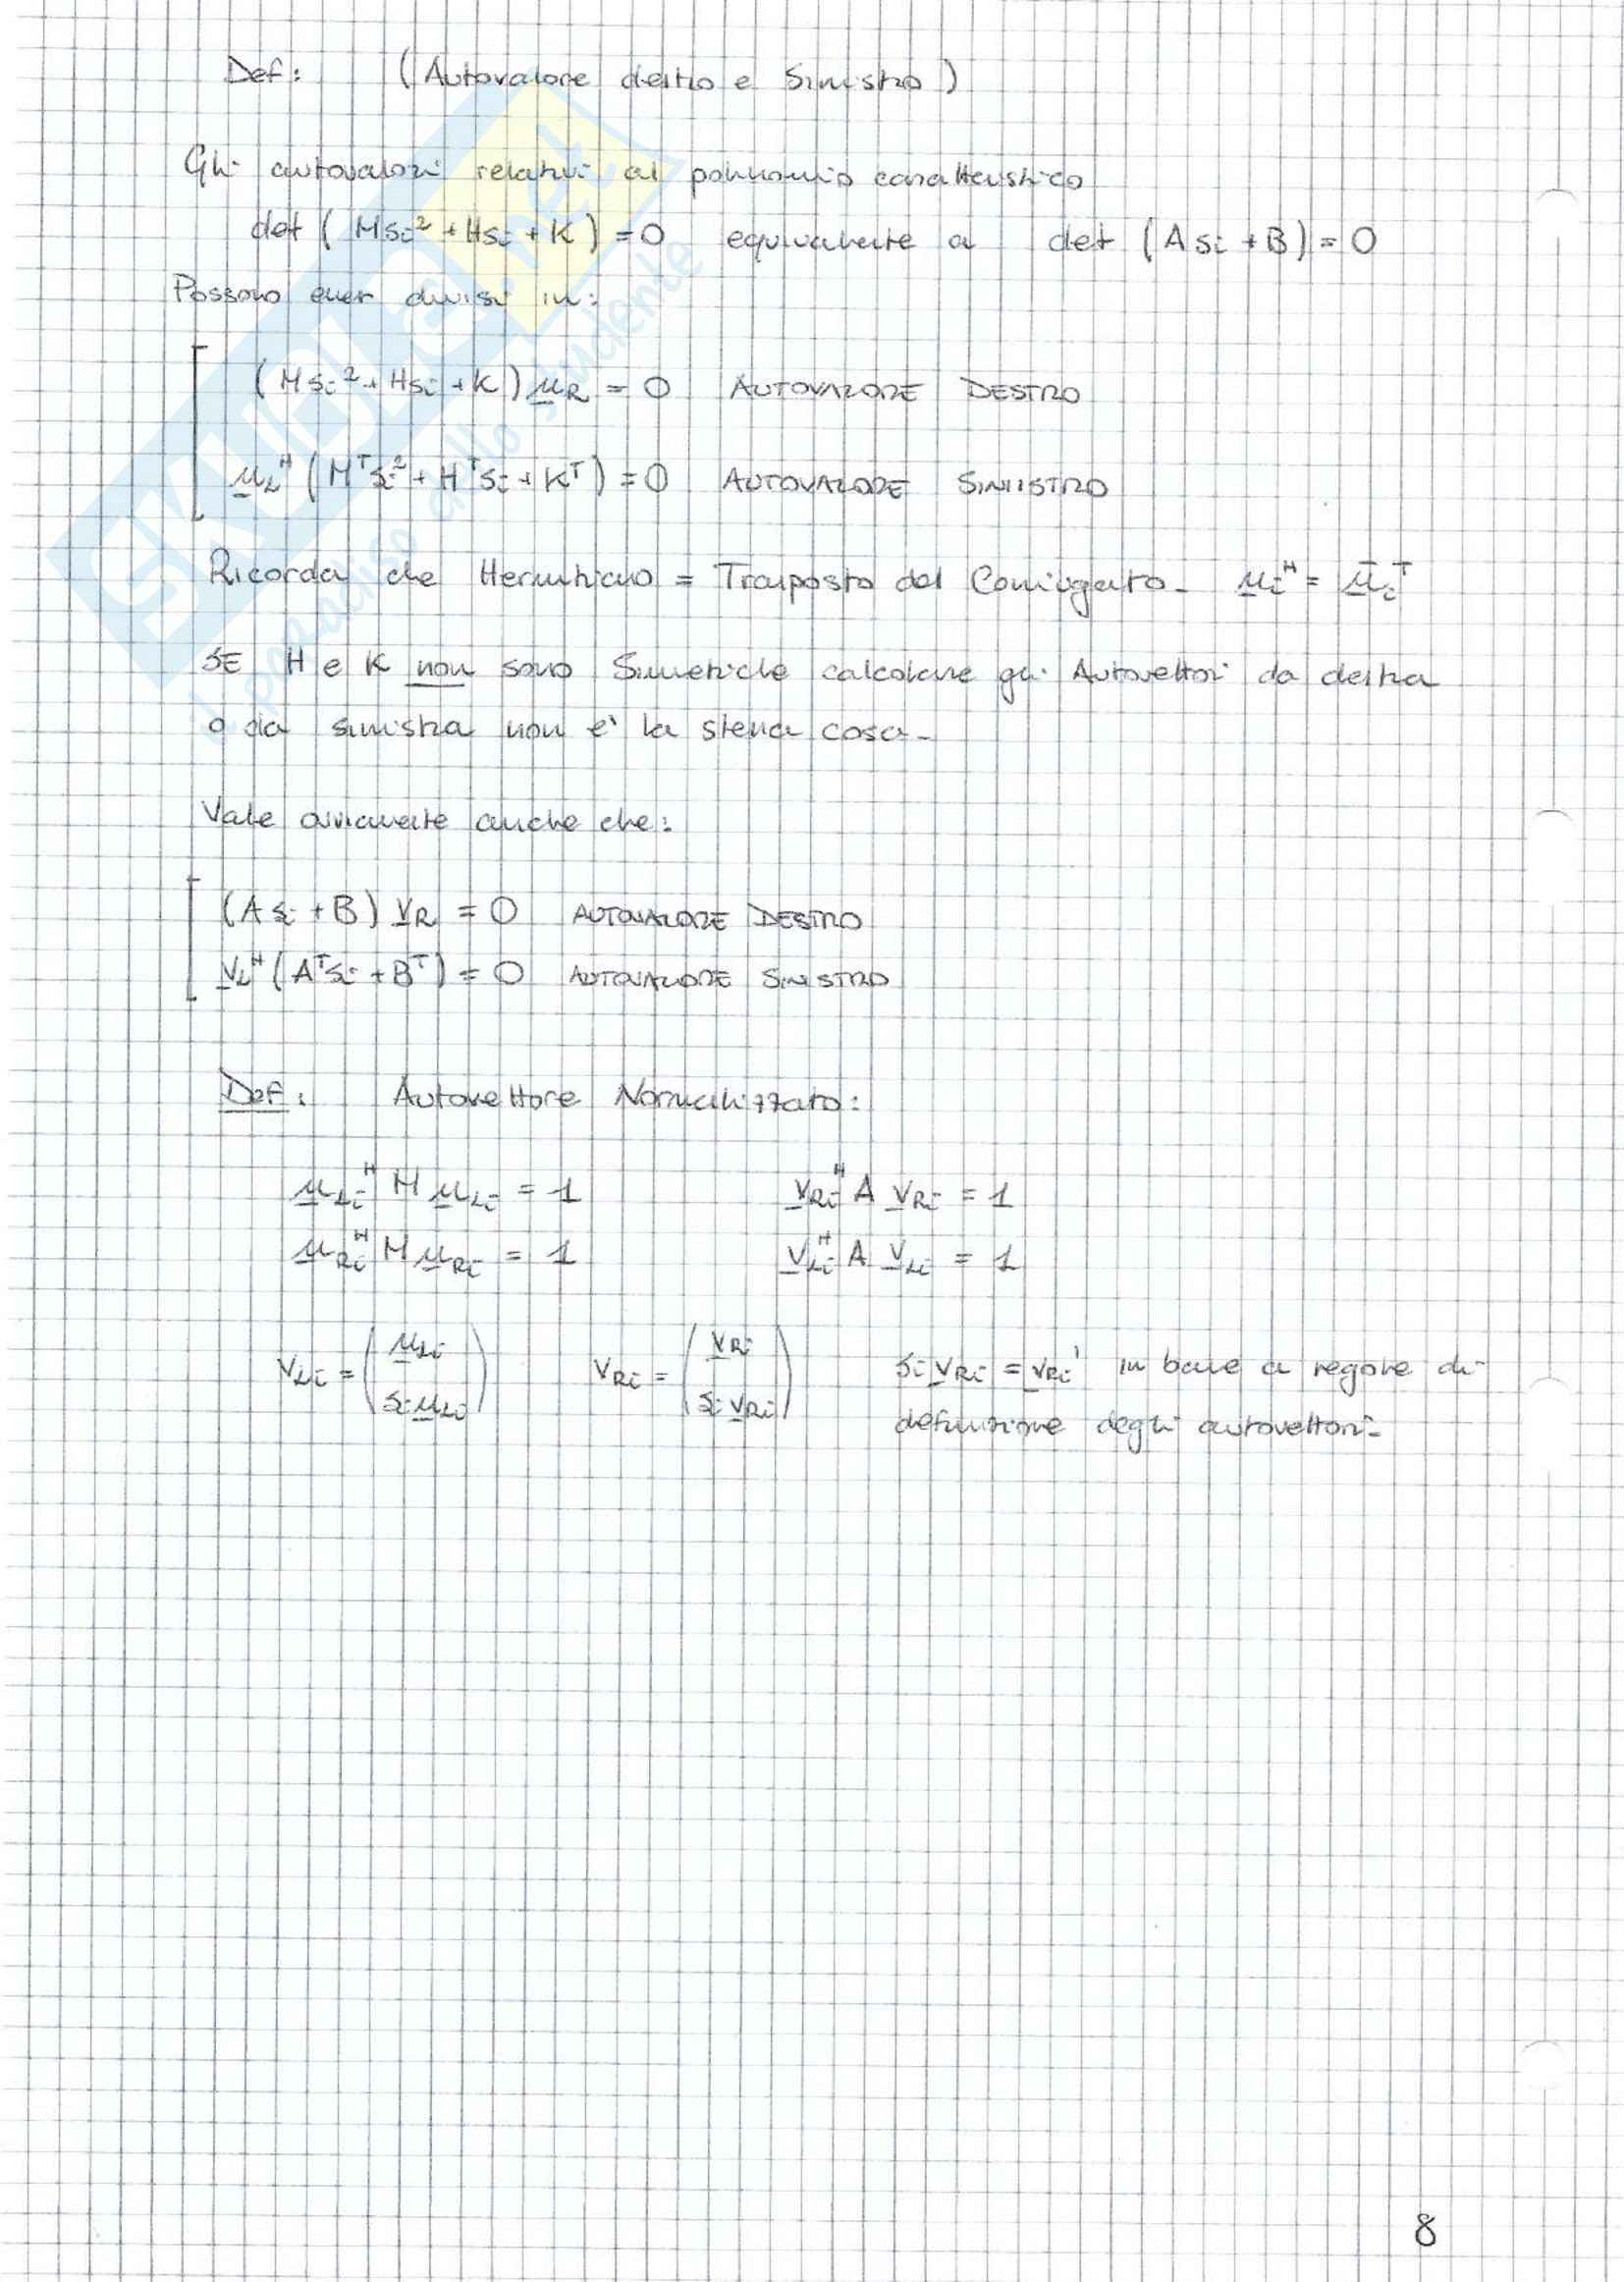 Def: (Autovalore destro e Sinistro)
Gli autovalori relativi al polinomio caratteristico
det (Msi² + Hsi + K) = 0 equivalente a det (A si + B) = 0
Possono esser divisi in:
(Msi² + Hsi + K) u_R = 0 AUTOVALORE DESTRO
u_L^H (M^T si² + H^T si + K^T) = 0 AUTOVALORE SINIISTRO
Ricorda che Hermitiano = Trasposto del Coniugato. u_i^H = ū_i^T
SE H e K non sono Simmetriche calcolare gli Autovettori da destra
o da sinistra non e' la stessa cosa.
Vale ovviamente anche che:
(A si + B) v_R = 0 AUTOVALORE DESTRO
v_L^H (A^T si + B^T) = 0 AUTOVALORE SINISTRO
Def: Autovettore Normalizzato:
u_Li^H M u_Li = 1 v_Ri^H A v_Ri = 1
u_Ri^H M u_Ri = 1 v_Li^H A v_Li = 1
v_Li = (u_Li / si u_Li) v_Ri = (v_Ri / si v_Ri) si v_Ri = v_Ri' in base a regole di
definizione degli autovettori.
8
SKUOLA.net
il paradiso dello studente